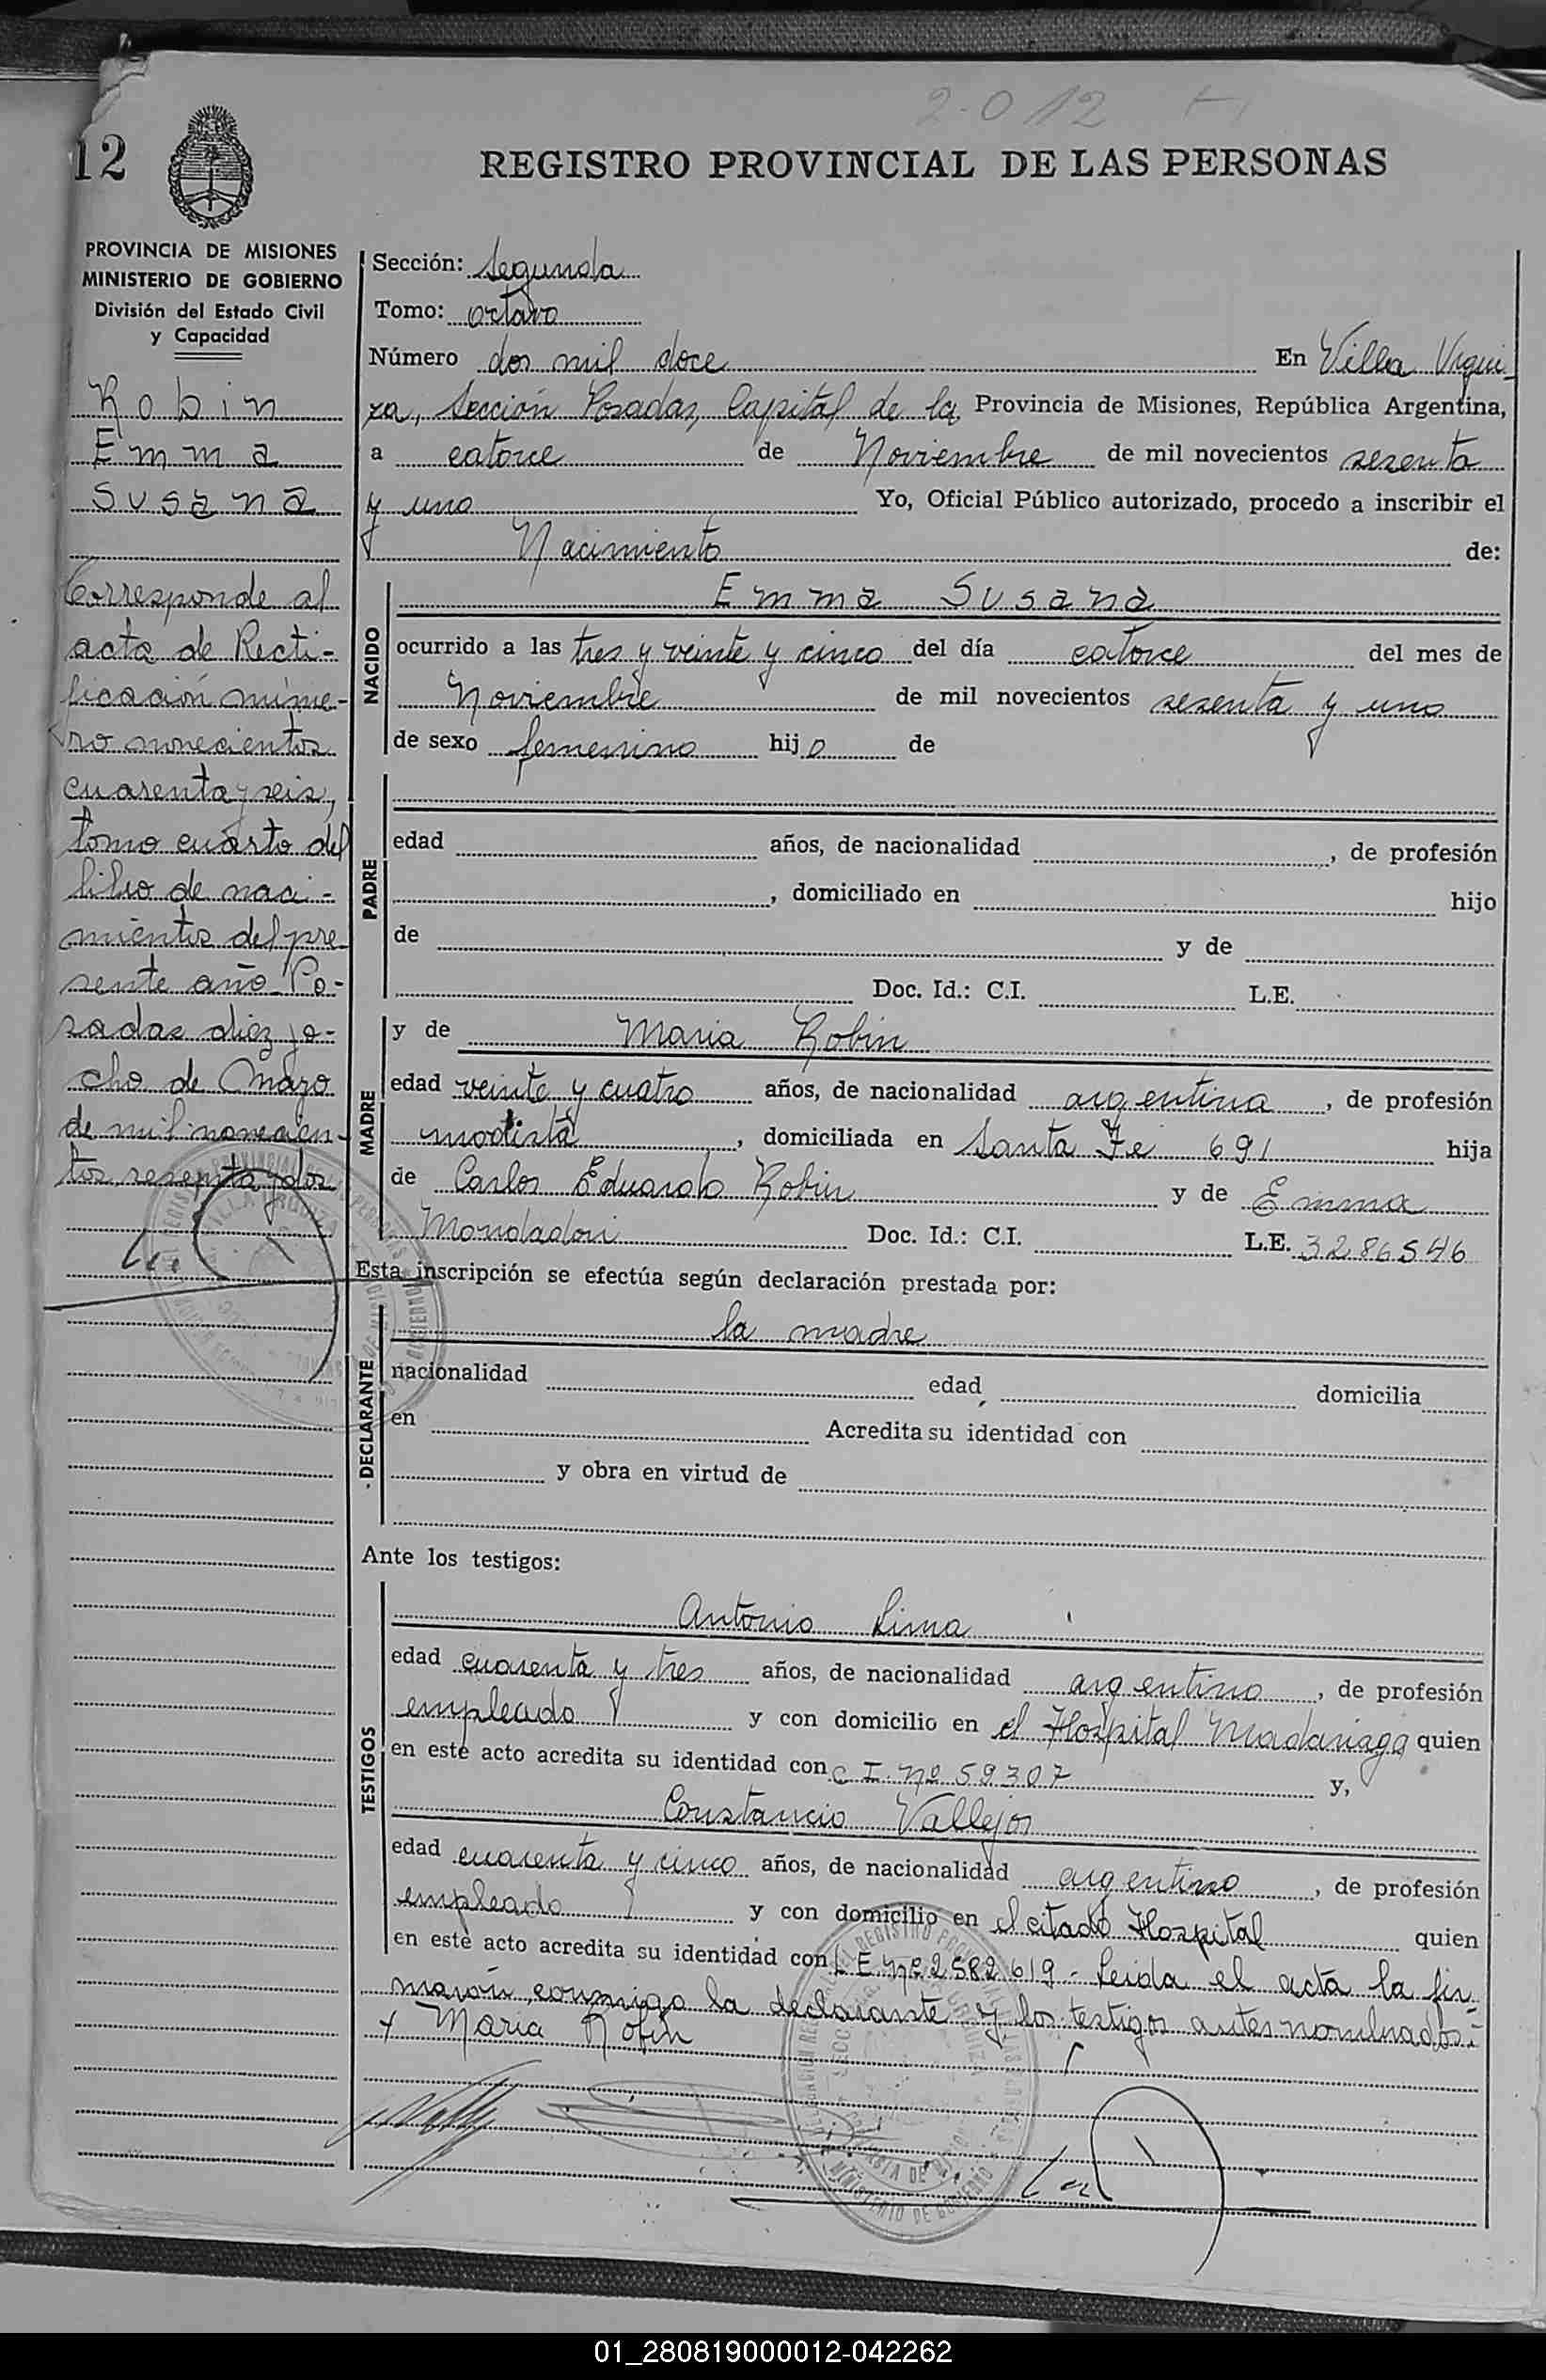 2.012
12
REGISTRO PROVINCIAL DE LAS PERSONAS
PROVINCIA DE MISIONES
MINISTERIO DE GOBIERNO
División del Estado Civil
y Capacidad
Robin
Emma
Susana
Corresponde al
acta de Recti-
ficación núme-
ro novecientos
cuarenta y seis,
tomo cuarto del
libro de naci-
mientos del pre-
sente año Po-
sadas diez y o-
cho de Mayo
de mil novecien-
tos sesenta y dos
Sección: Segunda
Tomo: octavo
Número dos mil doce En Villa Urqui-
za, Sección Posadas, Capital de la Provincia de Misiones, República Argentina,
a catorce de Noviembre de mil novecientos sesenta
y uno Yo, Oficial Público autorizado, procedo a inscribir el
Nacimiento de:
NACIDO
Emma Susana
ocurrido a las tres y veinte y cinco del día catorce del mes de
Noviembre de mil novecientos sesenta y uno
de sexo femenino hija de
PADRE
edad años, de nacionalidad , de profesión
, domiciliado en hijo
de y de
Doc. Id.: C.I. L.E.
MADRE
y de Maria Robin
edad veinte y cuatro años, de nacionalidad argentina, de profesión
modista, domiciliada en Santa Fe 691 hija
de Carlos Eduardo Robin y de Emma
Mondadori Doc. Id.: C.I. L.E. 3286546
Esta inscripción se efectúa según declaración prestada por:
DECLARANTE
la madre
nacionalidad edad domicilia
en Acredita su identidad con
y obra en virtud de
Ante los testigos:
TESTIGOS
Antonio Lima
edad cuarenta y tres años, de nacionalidad argentino, de profesión
empleado y con domicilio en el Hospital Madariaga quien
en este acto acredita su identidad con C I. Nº 59307 y,
Constancio Vallejos
edad cuarenta y cinco años, de nacionalidad argentino, de profesión
empleado y con domicilio en el citado Hospital quien
en este acto acredita su identidad con L E. Nº 2582619 - Leida el acta la fir-
maron conmigo la declarante y los testigos antes nombrados.-
x Maria Robin
01_280819000012-042262